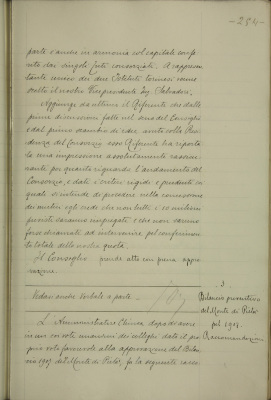 - 284 -
parte s'anche in armonia col capitale confe-
rito dai singoli Enti consorziati. A rappresen-
tante unico dei due Istituti torinesi venne
scelto il nostro Vicepresidente Ing. Salvadori.
Aggiunge da ultimo il Riferente che dalle
prime discussioni fatte nel seno del Consiglio
e dal primo scambio di idee avuto colla Pre-
sidenza del Consorzio esso Riferente ha riporta-
to una impressione assolutamente rassicu-
rante per quanto riguarda l'andamento del
Consorzio, e dati i criteri rigidi e prudenti coi
quali s'intende di procedere nella concessione
dei mutui egli crede che non tutti i 50 milioni
previsti saranno impegnati e che non saremo
forse chiamati ad intervenire pel conferimen-
to totale della nostra quota.
Il Consiglio prende atto con piena appro-
vazione.
Vedasi anche verbale a parte.
3
Bilancio preventivo
del Monte di Pietà
pel 1907.
Raccomandazioni
L'Amministratore Chiesa, dopo di avere
in un con voti unanimi dei colleghi dato il pro-
prio voto favorevole alla approvazione del Bilan-
cio 1907 del Monte di Pietà, fa la seguente racco-